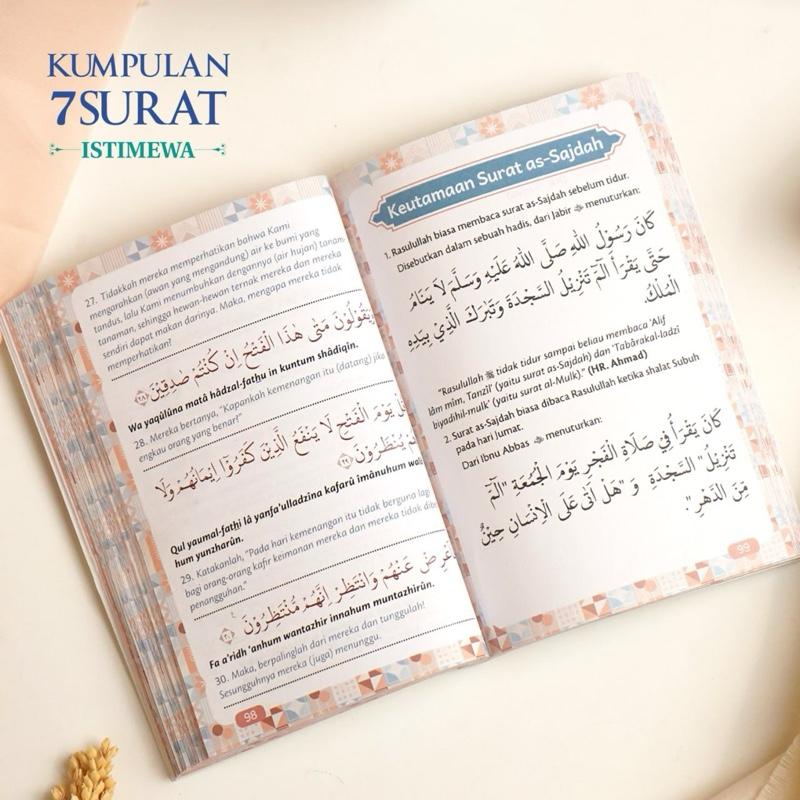 KUMPULAN
7SURAT
ISTIMEWA
27. Tidakkah mereka memperhatikan bahwa Kami
mengarahkan (awan yang mengandung) air ke bumi yang
tandus, lalu Kami menumbuhkan dengannya (air hujan) tanam
tanaman, sehingga hewan-hewan ternak mereka dan mereka
sendiri dapat makan darinya. Maka, mengapa mereka tidak
memperhatikan?
وَيَقُوْلُوْنَ مَتٰى هٰذَا الْفَتْحُ اِنْ كُنْتُمْ صٰدِقِيْنَ ٢٨
Wa yaqûlûna matâ hâdzal-fathu in kuntum shâdiqîn.
28. Mereka bertanya, "Kapankah kemenangan itu (datang) jika
engkau orang yang benar?"
يَوْمَ الْفَتْحِ لَا يَنْفَعُ الَّذِيْنَ كَفَرُوْٓا اِيْمَانُهُمْ وَلَا
يُنْظَرُوْنَ ٢٩
Qul yaumal-fathi lâ yanfa'ulladzina kafarû îmânuhum wa
hum yunzharûn.
29. Katakanlah, "Pada hari kemenangan itu tidak berguna lag
bagi orang-orang kafir keimanan mereka dan mereka tidak dibe
penangguhan."
عَنْهُمْ وَانْتَظِرْ اِنَّهُمْ مُّنْتَظِرُوْنَ ٣٠
Fa a'ridh 'anhum wantazhir innahum muntazhirûn.
30. Maka, berpalinglah dari mereka dan tunggulah!
Sesungguhnya mereka (juga) menunggu.
98
Keutamaan Surat as-Sajdah
1. Rasulullah biasa membaca surat as-Sajdah sebelum tidur.
Disebutkan dalam sebuah hadis, dari Jabir menuturkan:
كَانَ رَسُوْلُ اللهِ صَلَّى اللهُ عَلَيْهِ وَسَلَّمَ لَا يَنَامُ
حَتَّى يَقْرَأَ الٓمّٓ تَنْزِيْلُ السَّجْدَةَ وَتَبَارَكَ الَّذِيْ بِيَدِهِ
الْمُلْكُ.
"Rasulullah ﷺ tidak tidur sampai beliau membaca 'Alif
lâm mîm, Tanzîl' (yaitu surat as-Sajdah) dan 'Tabârakal-ladzî
biyadihil-mulk' (yaitu surat al-Mulk)." (HR. Ahmad)
2. Surat as-Sajdah biasa dibaca Rasulullah ketika shalat Subuh
pada hari Jumat.
Dari Ibnu Abbas menuturkan:
كَانَ يَقْرَأُ فِي صَلَاةِ الْفَجْرِ يَوْمَ الْجُمُعَةِ "الٓمّٓ
تَنْزِيْلُ" السَّجْدَةَ وَ"هَلْ اَتٰى عَلَى الْاِنْسَانِ حِيْنٌ
مِّنَ الدَّهْرِ".
99